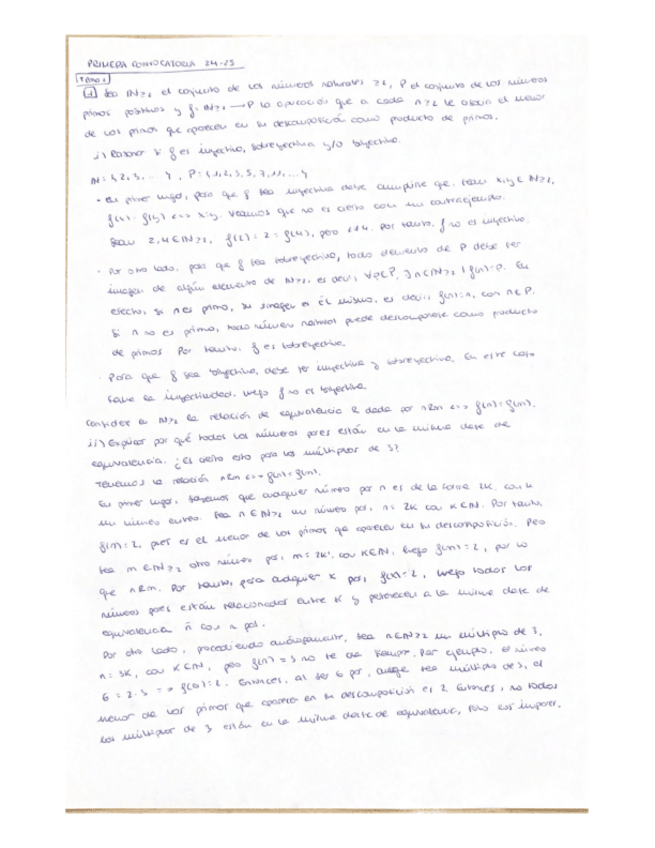 PRIMERA CONVOCATORIA 24-25
TEMA 1
1 Sea IN≥2 el conjunto de los números naturales ≥2, P el conjunto de los números
primos positivos y f: IN≥2 → P la aplicación que a cada n≥2 le asocia el menor
de los primos que aparecen en su descomposición como producto de primos.
i) Razonar si f es inyectiva, sobreyectiva y/o biyectiva.
IN = {2, 3, ... }, P = {1, 2, 3, 5, 7, 11, ... }
• En primer lugar, para que f sea inyectiva debe cumplirse que, sean x, y ∈ IN≥2,
f(x) = f(y) <=> x=y. Veamos que no es cierto con un contraejemplo.
Sean 2, 4 ∈ IN≥2, f(2) = 2 = f(4), pero 2≠4. Por tanto, f no es inyectiva.
• Por otro lado, para que f sea sobreyectiva, todo elemento de P debe ser
imagen de algún elemento de IN≥2, es decir, ∀p∈P, ∃n∈IN≥2 | f(n)=p. En
efecto, si n es primo, su imagen es él mismo, es decir, f(n)=n, con n∈P.
Si n no es primo, todo número natural puede descomponerse como producto
de primos. Por tanto, f es sobreyectiva.
· Para que f sea biyectiva, debe ser inyectiva y sobreyectiva. En este caso
falla la inyectividad, luego f no es biyectiva.
Consideren IN≥2 la relación de equivalencia R dada por nRm <=> f(n) = f(m).
ii) Explicar por qué todos los números pares están en la misma clase de
equivalencia. ¿Es cierto esto para los múltiplos de 3?
Tenemos la relación nRm <=> f(n) = f(m).
En primer lugar, sabemos que cualquier número par n es de la forma 2K, con K
un número entero. Sea n ∈ IN≥2 un número par, n = 2K con K∈IN. Por tanto,
f(n) = 2, pues es el menor de los primos que aparecen en su descomposición. Pero
sea m ∈ IN≥2 otro número par, m = 2K', con K∈IN, luego f(m) = 2, por lo
que nRm. Por tanto, para cualquier x par, f(x) = 2, luego todos los
números pares están relacionados entre sí y pertenecen a la misma clase de
equivalencia n̄ con n par.
Por otro lado, procediendo análogamente, sea n∈IN≥2 un múltiplo de 3,
n = 3K, con K∈IN, pero f(n) = 3 no se da siempre. Por ejemplo, el número
6 = 2·3 => f(6) = 2. Entonces, al ser 6 par, aunque sea múltiplo de 3, el
menor de los primos que aparece en su descomposición es 2. Entonces, no todos
los múltiplos de 3 están en la misma clase de equivalencia, solo los impares.